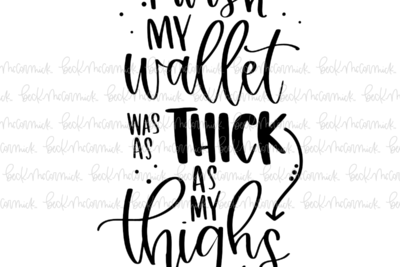 I wish
MY
wallet
WAS AS THICK
AS
MY
thighs